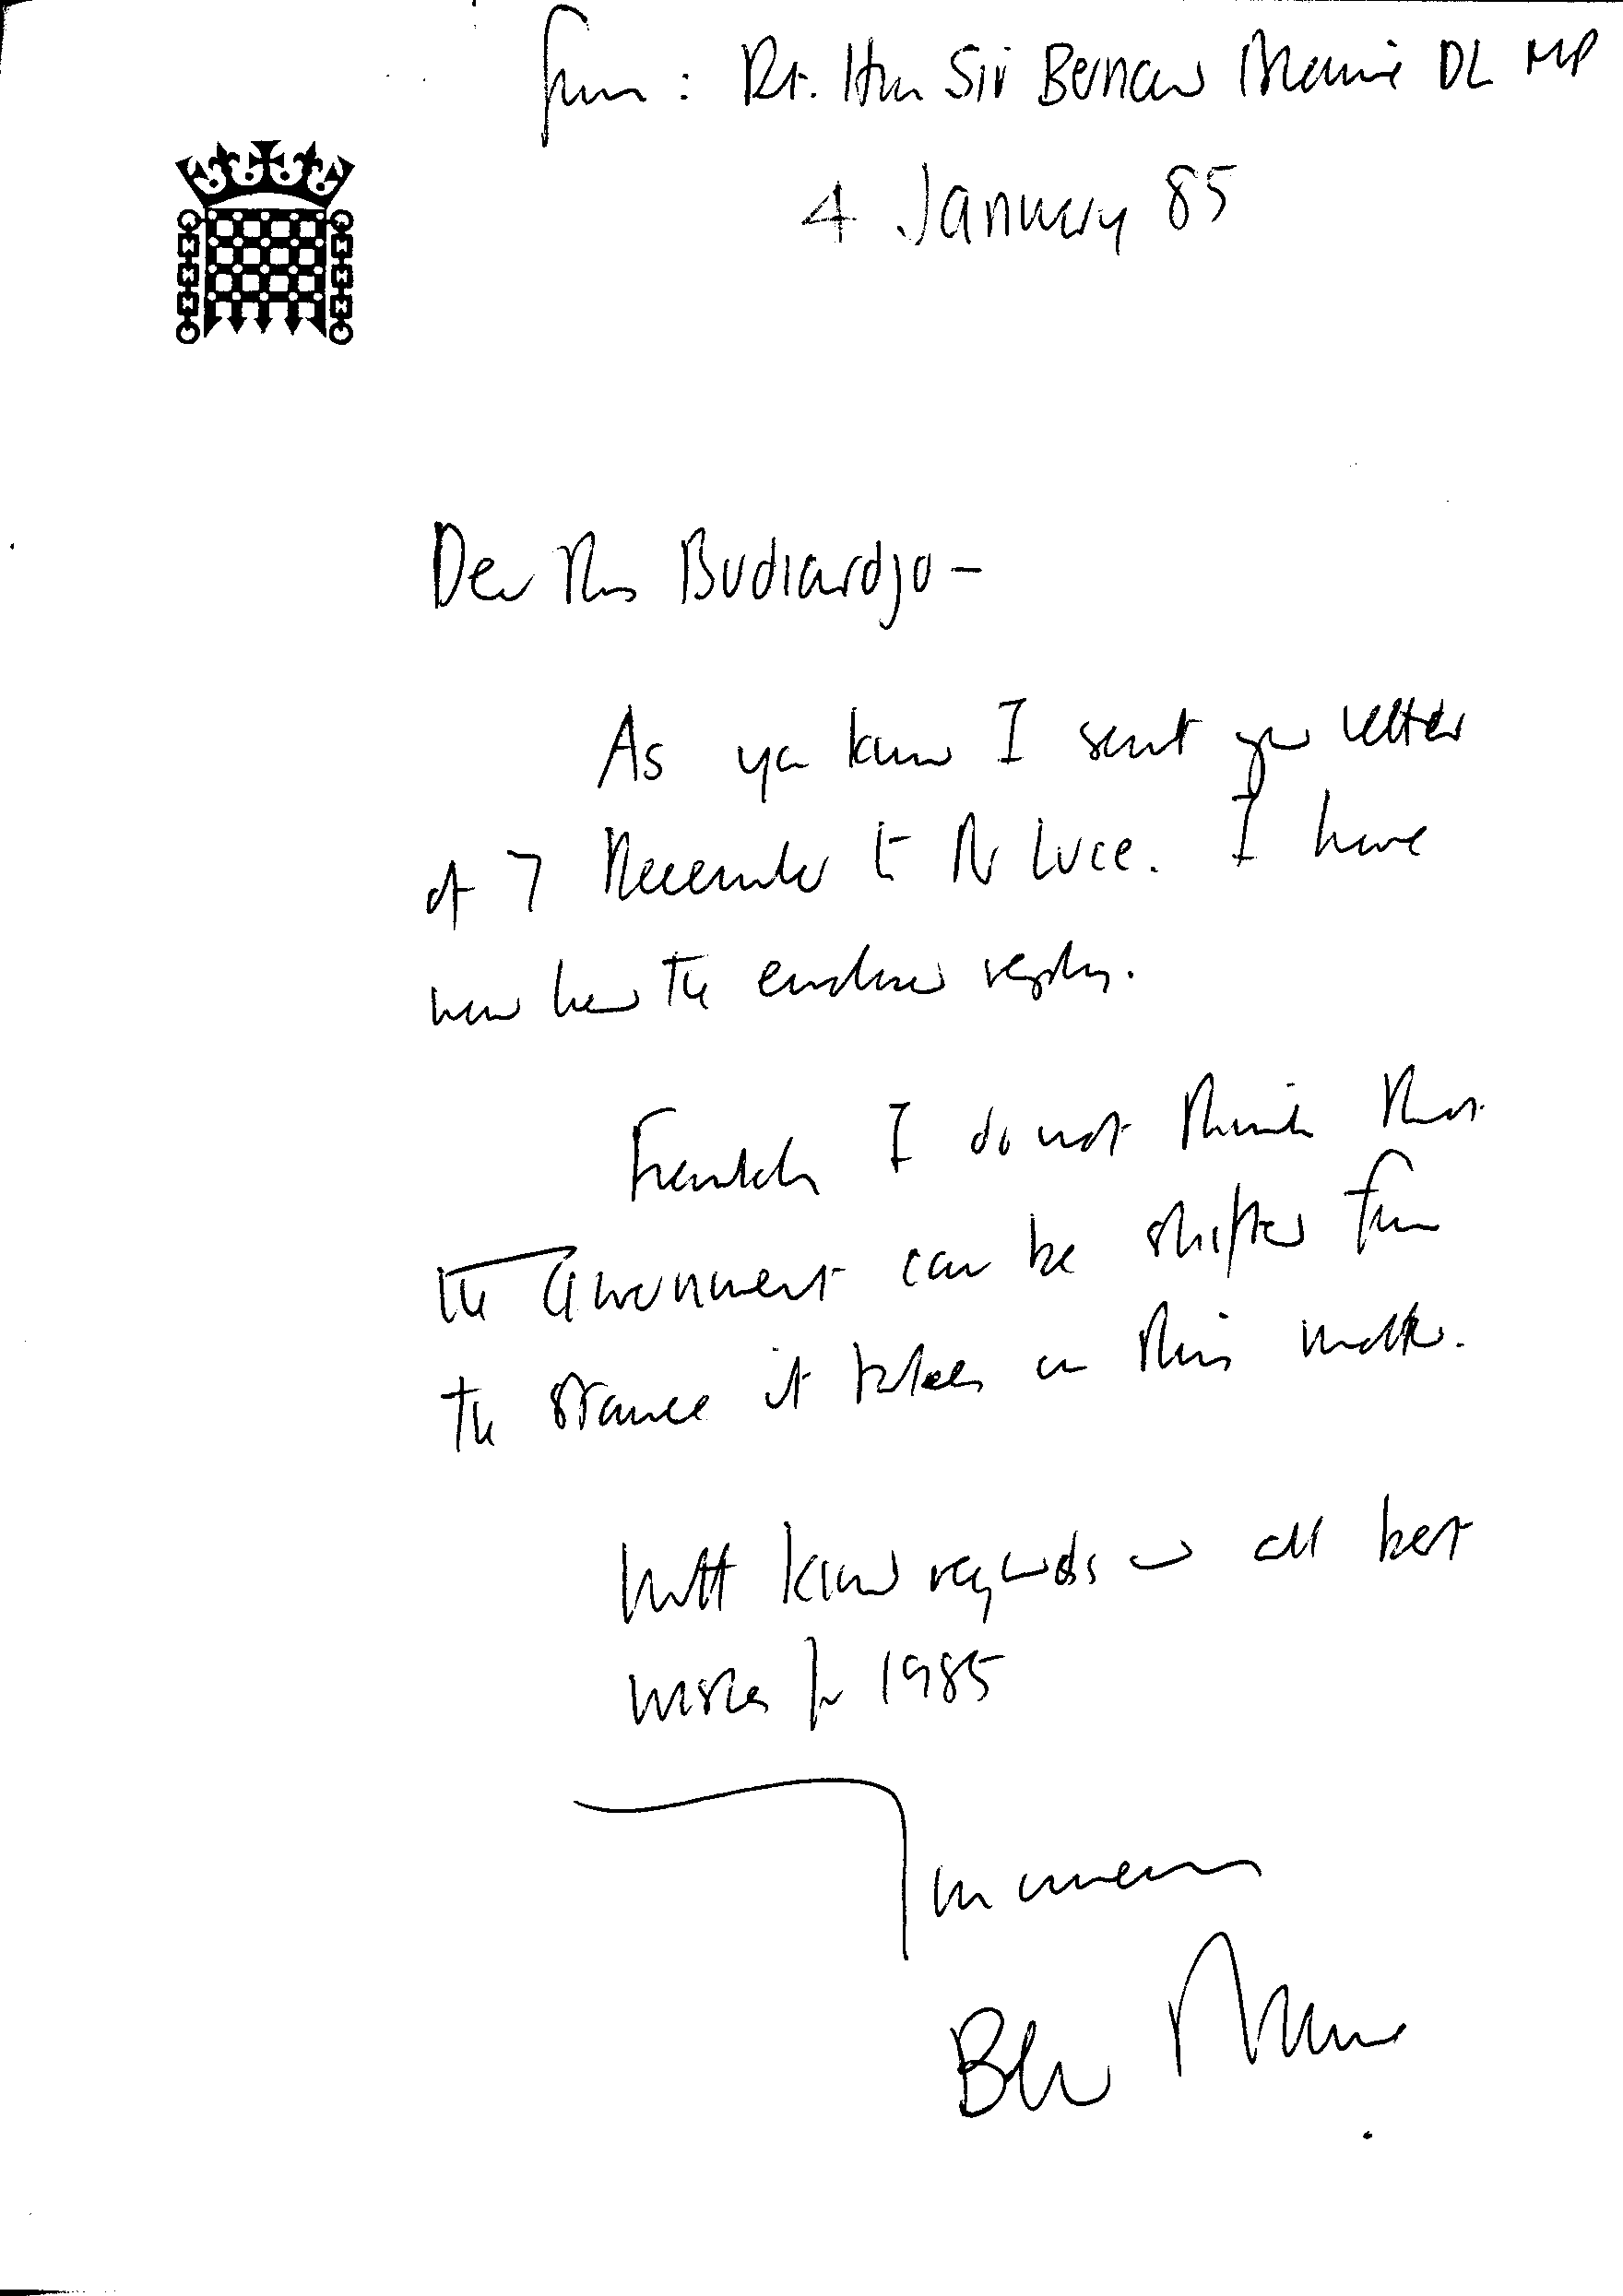 from : Rt. Hon Sir Bernard Braine DL MP
4 January 85
Dear Mrs Budiardjo -
As you know I sent your letter
of 7 December to Mr Luce. I have
now had the enclosed reply.
Frankly I do not think that
the Government can be shifted from
the stance it takes on this matter.
With kind regards and all best
wishes for 1985
Yours sincerely
Bernard Braine